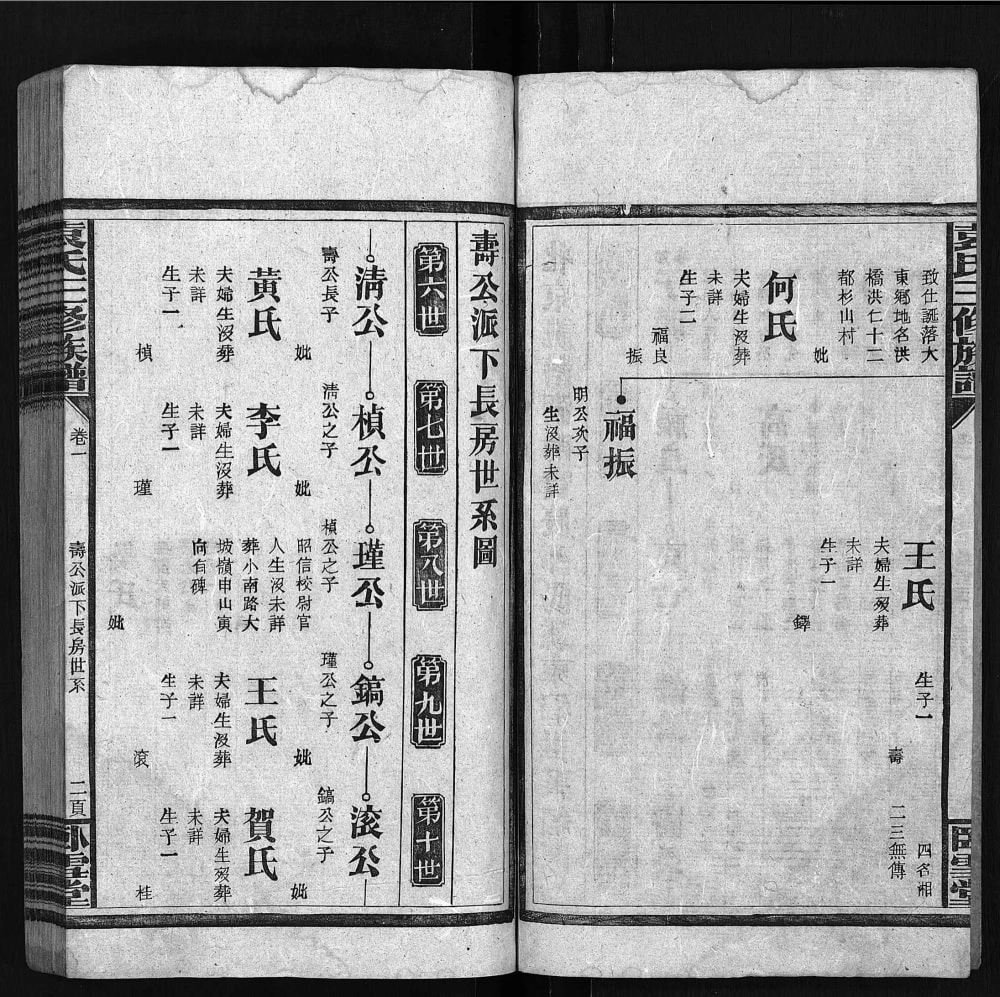 袁氏三修族譜
臥雲堂
致仕誕落大
東鄉地名洪
橋洪仁十二
都杉山村
妣
何氏
夫婦生沒葬
未詳
生子二
福良
振
福振
明公次子
生沒葬未詳
王氏
夫婦生歿葬
未詳
生子一
鐸
生子一
壽
四名湘
二三無傳
壽公派下長房世系圖
第六世
第七世
第八世
第九世
第十世
清公
壽公長子
妣
黃氏
夫婦生沒葬
未詳
生子一
楨
楨公
清公之子
妣
李氏
夫婦生沒葬
未詳
生子一
瑾
瑾公
楨公之子
昭信校尉官
人生沒未詳
葬小南路大
坡嶺申山寅
向有碑
妣
鎬公
瑾公之子
妣
王氏
夫婦生沒葬
未詳
生子一
滾
滾公
鎬公之子
妣
賀氏
夫婦生歿葬
未詳
生子一
桂
袁氏三修族譜
卷一
壽公派下長房世系
二頁
臥雲堂